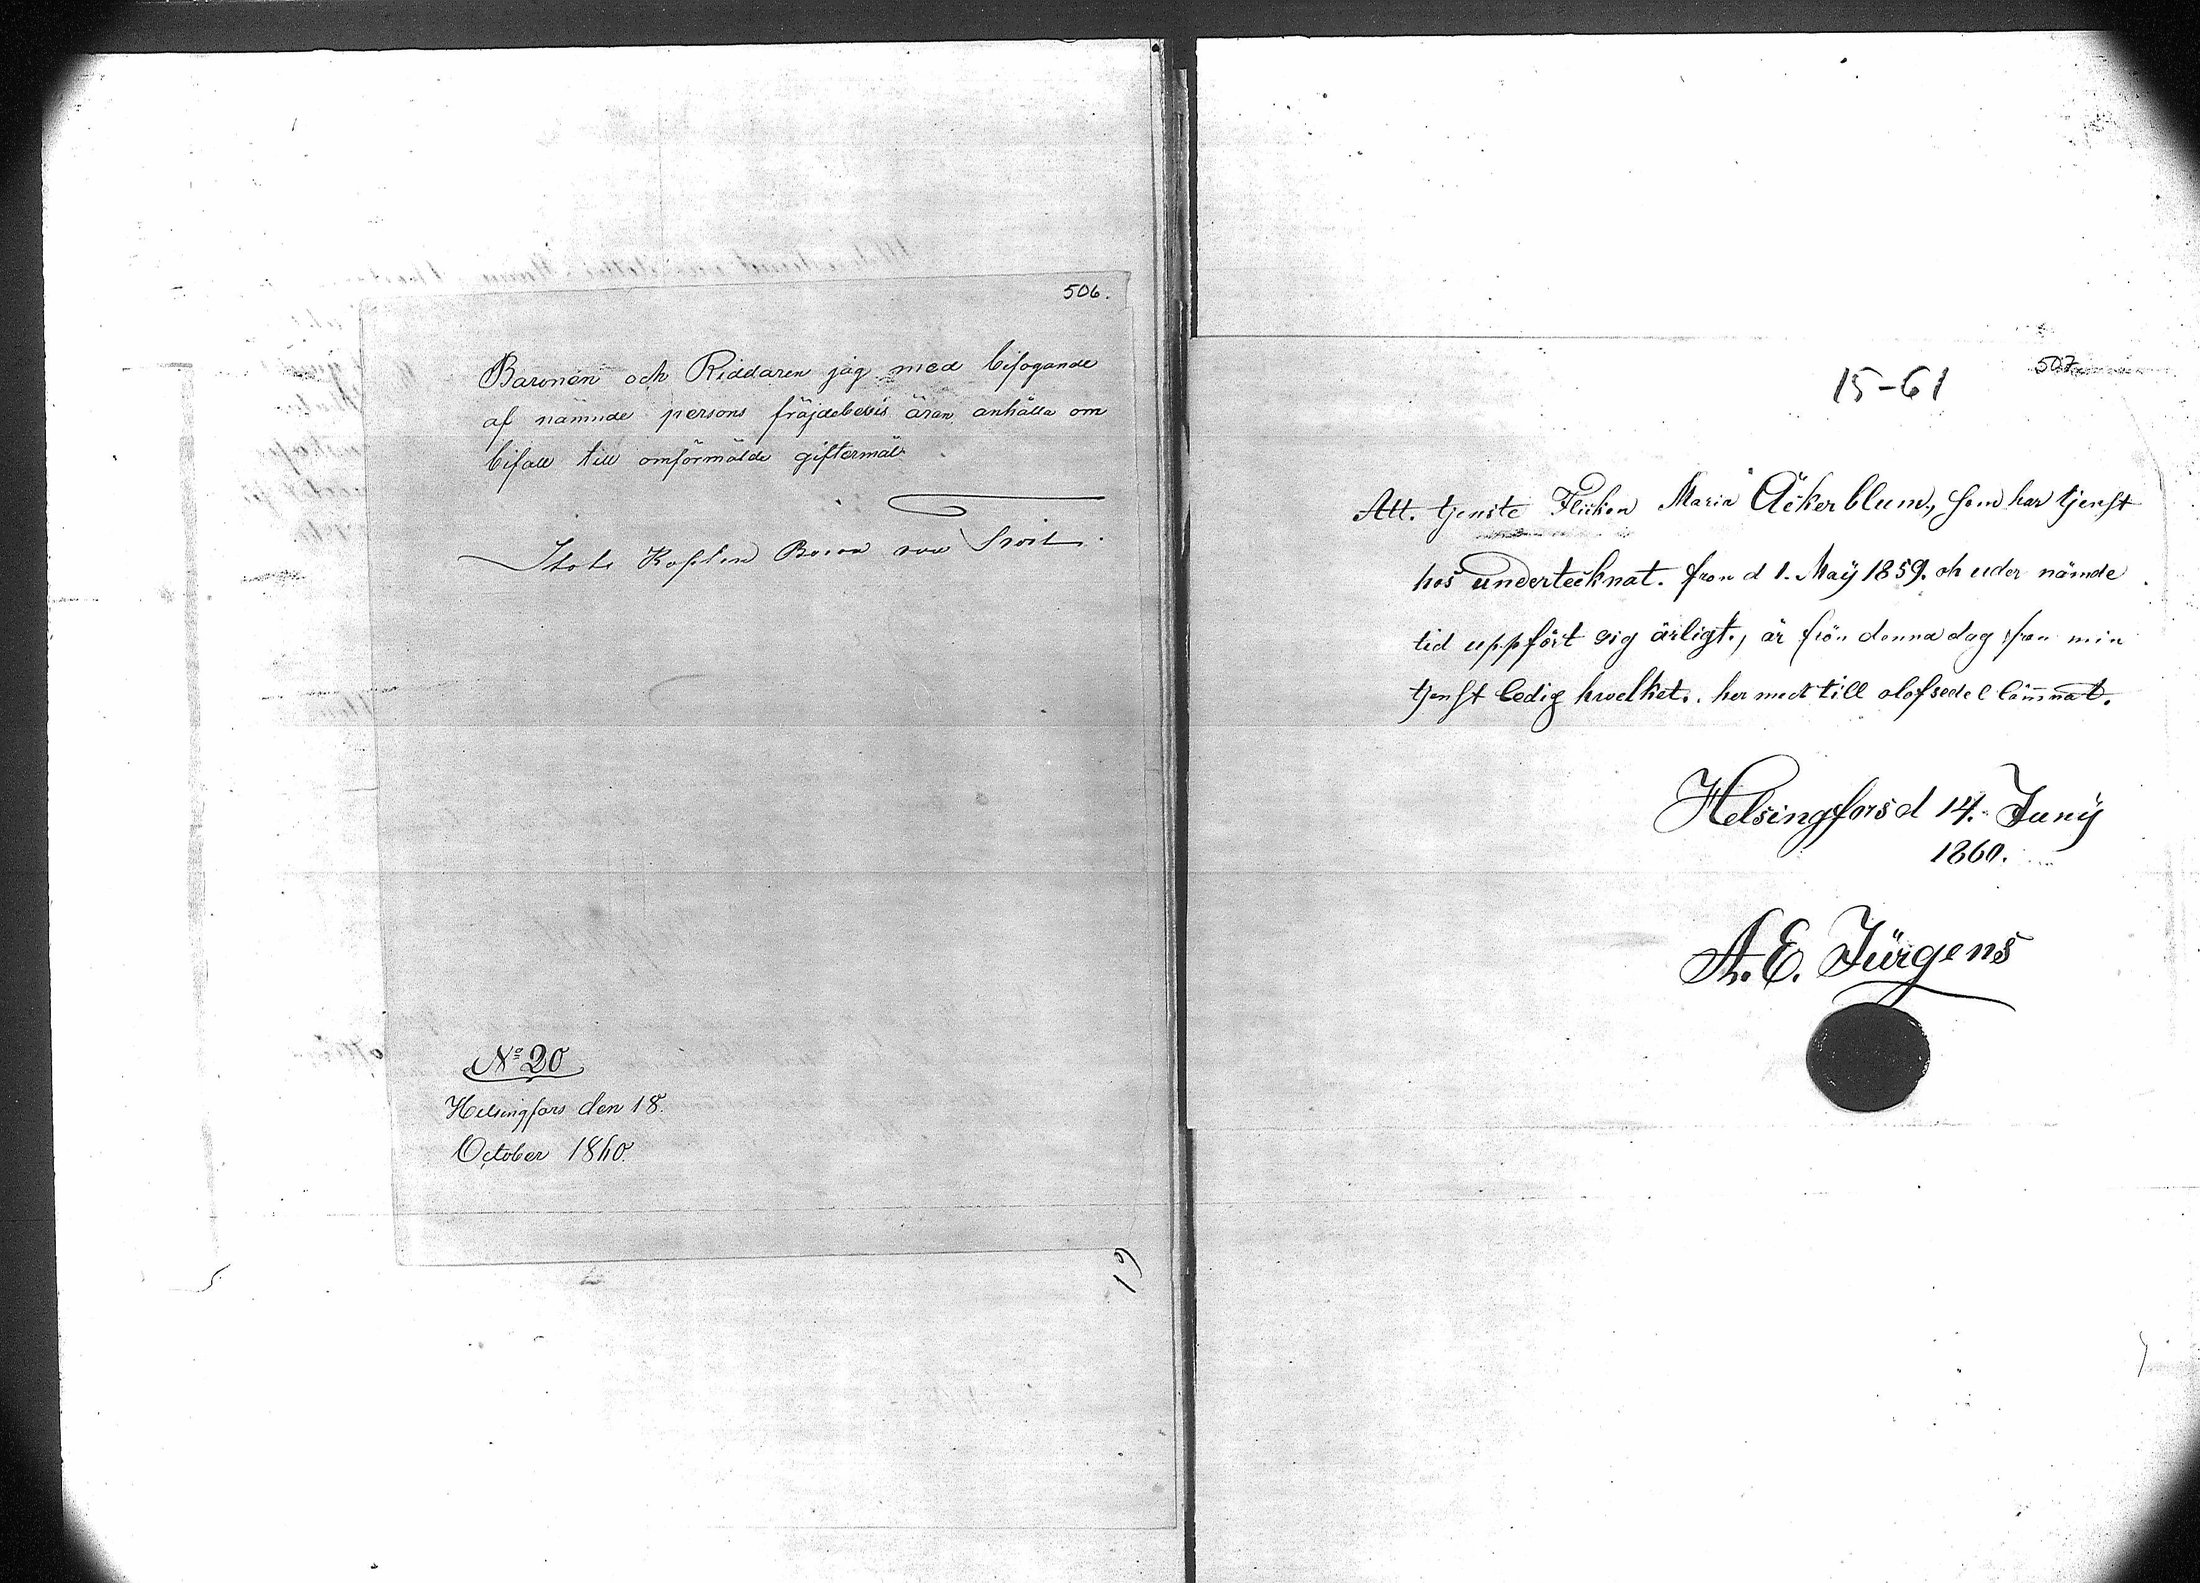 506.
Baronen och Riddaren jag med bifogande
af nämnde persons fräjdebevis äran anhålla om
bifall till omförmälde giftermål.
Baron von
No 20
Helsingfors den 18.
October 1860.
19
507
15-61
Att. tjenste Flickan Maria Åkerblum, som har tjenst
hos undertecknat. fron d 1. Maÿ 1859. oh uder nämde
tid uppfört sig ärligt., är från denna dag fran min
tjenst ledig hwelket. her medt till olofsedel lämnat.
Helsingfors d 14. Junÿ
1860.
A. E. Jürgens